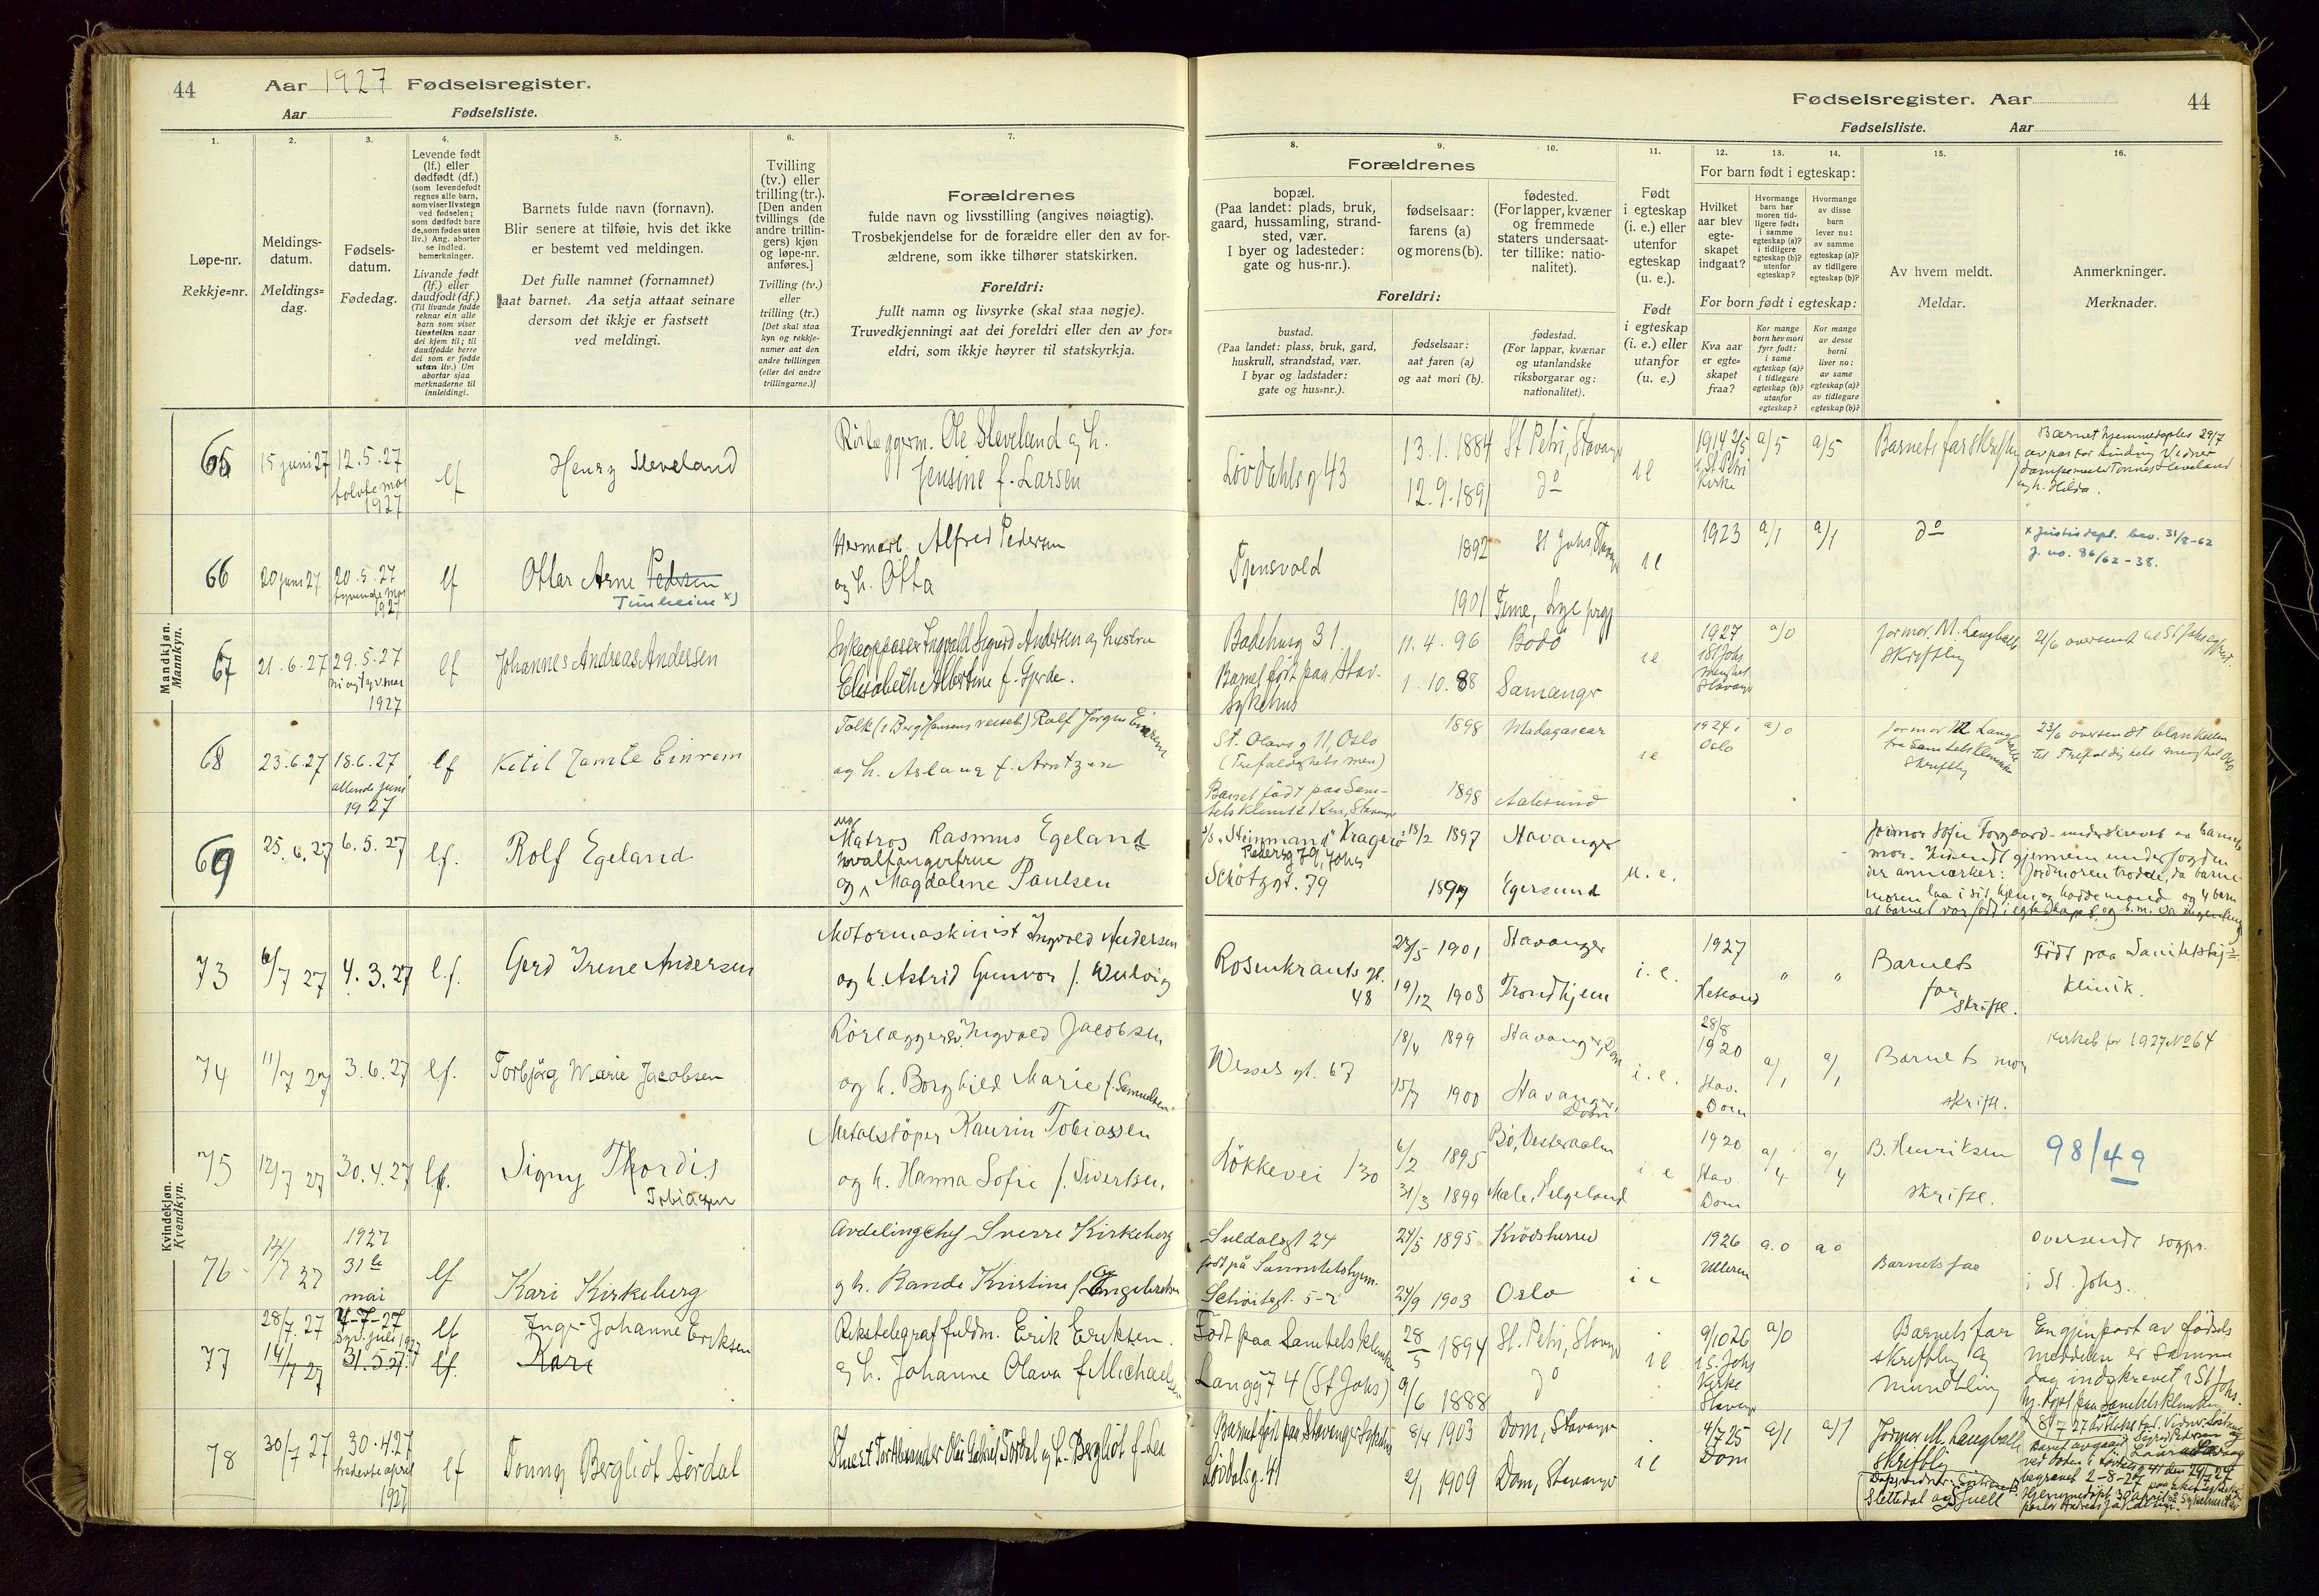 44
Aar 1927 Fødselsregister.
Aar Fødselsliste.
1.
2.
3.
4.
5.
6.
7.
Løpe-nr.
Rekkje=nr.
Meldings-
datum.
Meldings=
dag.
Fødsels-
datum.
Fødedag.
Levende født
(lf.) eller
dødfødt (df.)
(som levendefødt
regnes alle barn,
som viser livstegn
ved fødselen;
som dødfødt bare
de, som fødes uten
liv.) Ang. aborter
se indled.
bemerkninger.
Livande født
(lf.) eller
daudfødt (df.)
(Til livande fødde
reknar ein alle
barn som viser
livsteikn naar
dei kjem til; til
daudfødde berre
dei som er fødde
utan liv.) Um
abortar sjaa
merknaderne til
innleidingi.
Barnets fulde navn (fornavn).
Blir senere at tilføie, hvis det ikke
er bestemt ved meldingen.
Det fulle namnet (fornamnet)
aat barnet. Aa setja attaat seinare
dersom det ikkje er fastsett
ved meldingi.
Tvilling
(tv.) eller
trilling (tr.).
[Den anden
tvillings (de
andre trillin-
gers) kjøn
og løpe-nr.
anføres.]
Tvilling (tv.)
eller
trilling (tr.)
[Det skal staa
kyn og rekkje-
numer aat den
andre tvillingen
(eller dei andre
trillingarne.)]
Forældrenes
fulde navn og livsstilling (angives nøiagtig).
Trosbekjendelse for de forældre eller den av for-
ældrene, som ikke tilhører statskirken.
Foreldri:
fullt namn og livsyrke (skal staa nøgje).
Truvedkjenningi aat dei foreldri eller den av for=
eldri, som ikkje høyrer til statskyrkja.
Fødselsregister. Aar 44
Fødselsliste. Aar
8.
9.
10.
11.
12.
13.
14.
15.
16.
Forældrenes
bopæl.
(Paa landet: plads, bruk,
gaard, hussamling, strand-
sted, vær.
I byer og ladesteder:
gate og hus-nr.).
fødselsaar:
farens (a)
og morens (b).
fødested.
(For lapper, kvæner
og fremmede
staters undersaat-
ter tillike: natio-
nalitet).
Foreldri:
bustad.
(Paa landet: plass, bruk, gard,
huskrull, strandstad, vær.
I byar og ladstader:
gate og hus=nr.).
fødselsaar:
aat faren (a)
og aat mori (b).
fødestad.
(For lappar, kvænar
og utanlandske
riksborgarar og:
nationalitet).
Født
i egteskap
(i. e.) eller
utenfor
egteskap
(u. e.).
Født
i egteskap
(i. e.) eller
utanfor
(u. e.)
For barn født i egteskap:
Hvilket
aar blev
egte-
skapet
indgaat?
Hvormange
barn har
moren tid-
ligere født:
i samme
egteskap (a)?
i tidligere
egteskap (b)?
utenfor
egteskap?
Hvormange
av disse
barn
lever nu:
av samme
egteskap (a)?
av tidligere
egteskap (b)?
For born født i egteskap:
Kva aar
er egte=
skapet
fraa?
Kor mange
born hev mori
fyrr født:
i same
egteskap (a)?
i tidlegare
egteskap (b)?
utanfor
egteskap?
Kor mange
av desse
borni
liver no:
av same
egteskap (a)?
av tidlegare
egteskap (b)?
Av hvem meldt.
Meldar.
Anmerkninger.
Merknader.
Mandkjøn.
Mannkyn.
65
15 juni 27
12.5.27
tolvte mai
1927
lf
Henry Sleveland
Rørlæggerm. Ole Sleveland og h.
Jensine f. Larsen
Løvdahlsg 43
13.1.1884
12.9.1891
St Petri, Stavanger
do
i e
1914 2/5
i St Petri
Kirke
a/5
a/5
Barnets far skriftlig
Barnet hjemmedøptes 29/7
66
20 juni 27
20.5.27
tyvende mai
1927
lf
Ottar Arne Pedersen
Tunheim x)
Hermark. Alfred Pedersen
og h. Otta
Tjensvold
1892
1901
St Johs, Stavanger
Time, Lye prgj
i e
1923
a/1
a/1
do
x Justisdept. bev. 31/8-62
J. no. 86/62-38.
67
21.6.27
29.5.27
ni og tyv. mai
1927
lf
Johannes Andreas Andersen
Sykeopasser Ingvald Sigurd Andersen og hustru
Elisabeth Albertine f. Gjerde.
Badehusg 31
Barnet født paa Stav.
Sykehus
11.4.96
1.10.88
Bodö
Samanger
i e
1927
i St Johs
menighet
Stavanger
a/0
Jormor. M. Langballe
Skriftlig
21/6 oversendt til St Johs
68
23.6.27
18.6.27
attende juni
1927
lf
Ketil Zamte Einrem
Tolk (i Berg Hansens reiseb) Rolf Jørgen Einrem
og h. Aslaug f. Arntzen
St. Olavs g 11, Oslo
(Trefoldighets men)
Barnet født paa Sani-
tetsklinikken, Stavanger
1898
1898
Madagascar
Aalesund
i e
1924 i
Oslo
a/0
Jormor M Langballe
fra Sanitetsklinikken
Skriftlig
23/6 oversendt blanketten
til Trefoldighets menighet Oslo
69
25.6.27
6.5.27
lf.
Rolf Egeland
ug
Matros Rasmus Egeland
hvalfangerfrue
og Magdalene Paulsen
s/s "Steinmand" Kragerø
Pedersg 79, Johs
Schøtzgt. 79
18/2 1897
1897
Stavanger
Egersund
u. e.
Jordmor Sofie Torgaard - underskrevet av barnets
mor.
Kvindekjøn.
Kvendkyn.
73
6/7 27
4.3.27
l.f.
Gerd Irene Andersen
Motormaskinist Ingvald Andersen
og h. Astrid Gunvor f. Wulvig
Rosenkrants gt.
48
23/5 1901
19/12 1908
Stavanger
Trondhjem
i. e.
1927
Hetland
"
"
Barnets
far
skriftl.
Født paa Sanitetshj=
Klinik.
74
11/7 27
3.6.27
lf.
Torbjøg Marie Jacobsen
Rørlæggersv. Ingvald Jacobsen
og h. Borghild Marie f. Samuelsen
Wessels gt. 67
18/4 1899
15/7 1900
Stavanger, Dom
Stavanger,
Dom
i. e.
28/8
1920
Stav.
Dom
a/1
a/1
Barnets mor
skriftl.
Kirkeb for 1927 No 64
75
12/7 27
30.4.27
lf.
Signy Thordis
Tobiassen
Metalstöper Kaurin Tobiassen
og h. Hanna Sofie f. Sivertsen,
Løkkevei 130
6/2 1895
31/3 1899
Bö, Vesteraalen
Helgeland
i e
1920
Stav.
Dom
a/4
a/4
B. Henriksen
skriftl.
98/49
76
14/7 27
1927
31te
mai
lf
Kari Kirkeberg
Avdelingchef Sverre Kirkeberg
og h. Rande Kristine f. Engebretsen
Suldalsgt 24
født på Sanitetshjem.
24/5 1895
24/9 1903
Krödsherred
Oslo
i e
1926
Ulleren
a.0
a 0
Barnets far
oversendt sogpr.
i St. Johs.
77
28/7.27
14/7 27
4-7-27
Syv. juli 1927
31.5.27
lf
lf.
Inger Johanne Eriksen
Kari
Rikstelegraffuldm. Erik Eriksen.
og h. Johanne Olava f Michaelsen
Født paa Sanitetsklinikken
Langg 74 (St Johs)
28/5 1894
9/6 1888
St. Petri, Stavanger
do
i e
9/10 26
i S. Johs
Kirke
Stavanger
a/0
Barnets far
skriftlig og
mundtlig
En gjenpart av fødsels
meddelelse er samme
dag indskrevet i St Johs.
78
30/7 27
30.4.27
tredevte april
1927
lf
Tonny Bergliot Sørdal
Stuert Tor Alexander Olai Gabriel Sørdal og h. Bergliot f. Lea
Barnet født paa Stavanger Sykehus
Løvdalsg. 41
8/4 1903
2/1 1909
Dom, Stavanger
Dom, Stavanger
i e
4/7 25
Dom
a/1
a/1
Jormor M. Langballe
skriftlig
begravet 2-8-27